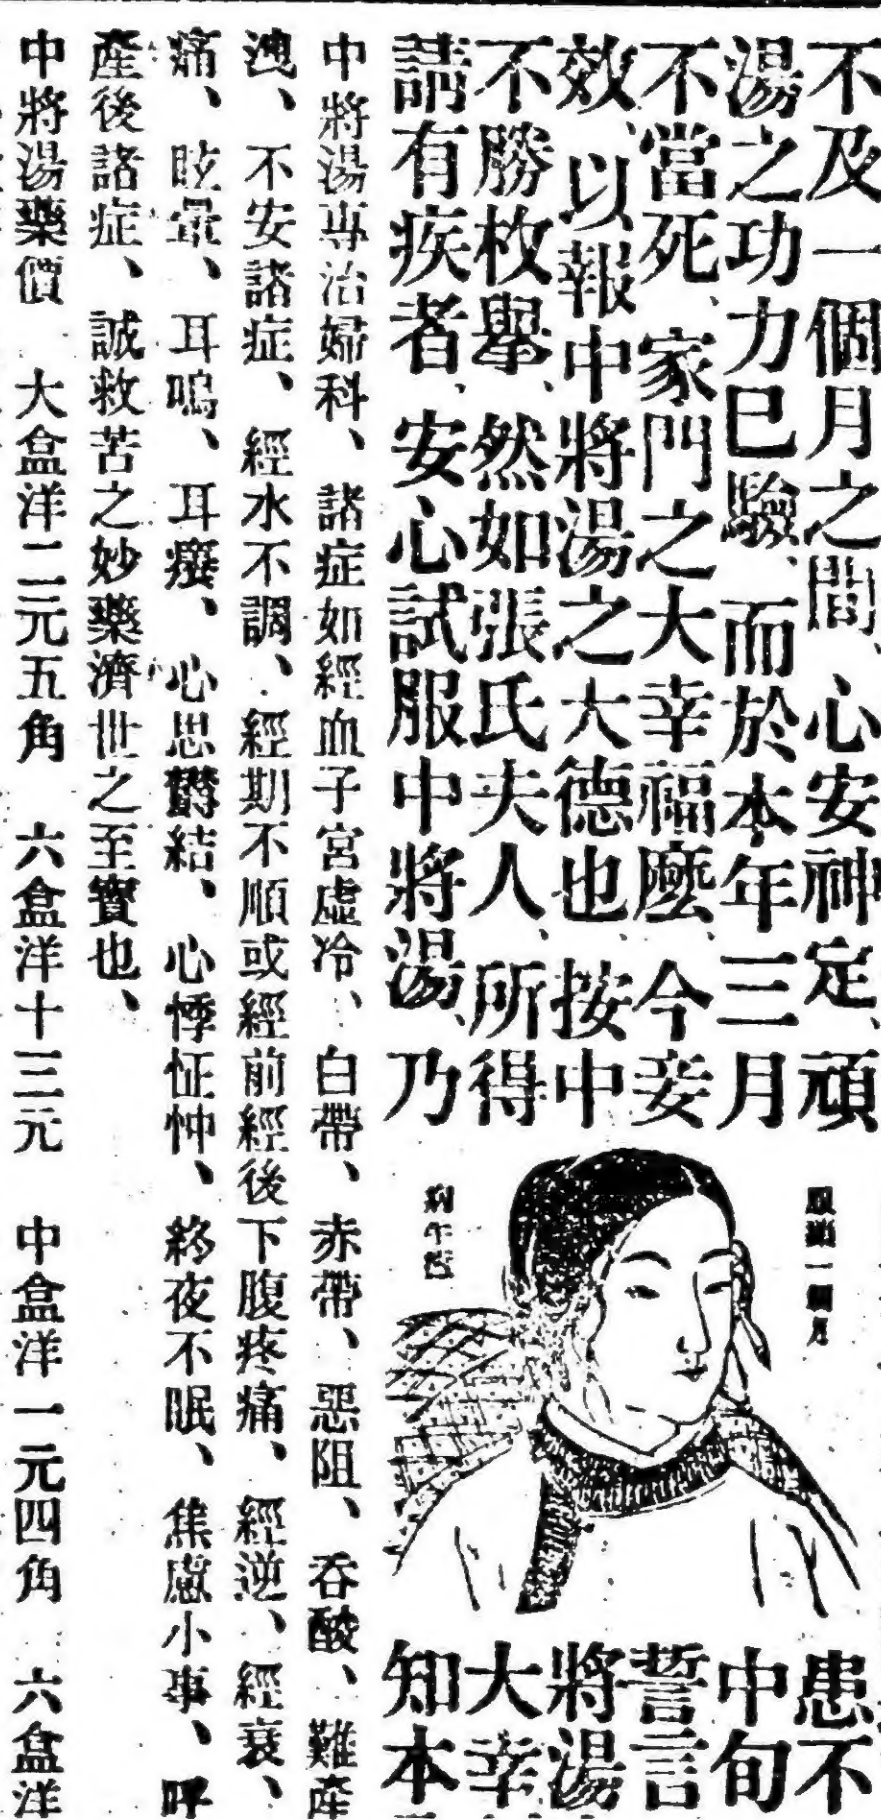 不及一個月之間、心安神定、頑
湯之功力巳驗、而於本年三月
不當死、家門之大幸福麼、今妾
效、以報中將湯之大德也、按中
不勝枚舉、然如張氏夫人、所得
請有疾者、安心試服中將湯、乃
服藥一個月
患不
中旬
誓言
將湯
大幸
知本
中將湯專治婦科、諸症如經血子宮虛冷、白帶、赤帶、惡阻、吞酸、難產
洩、不安諸症、經水不調、經期不順或經前經後下腹疼痛、經逆、經衰、
痛、眩暈、耳鳴、耳癢、心思鬱結、心悸怔忡、終夜不眠、焦慮小事、呼
產後諸症、誠救苦之妙藥濟世之至寶也、
中將湯藥價 大盒洋二元五角 六盒洋十三元 中盒洋一元四角 六盒洋